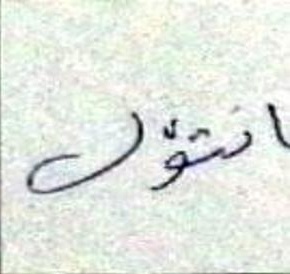 انتوں